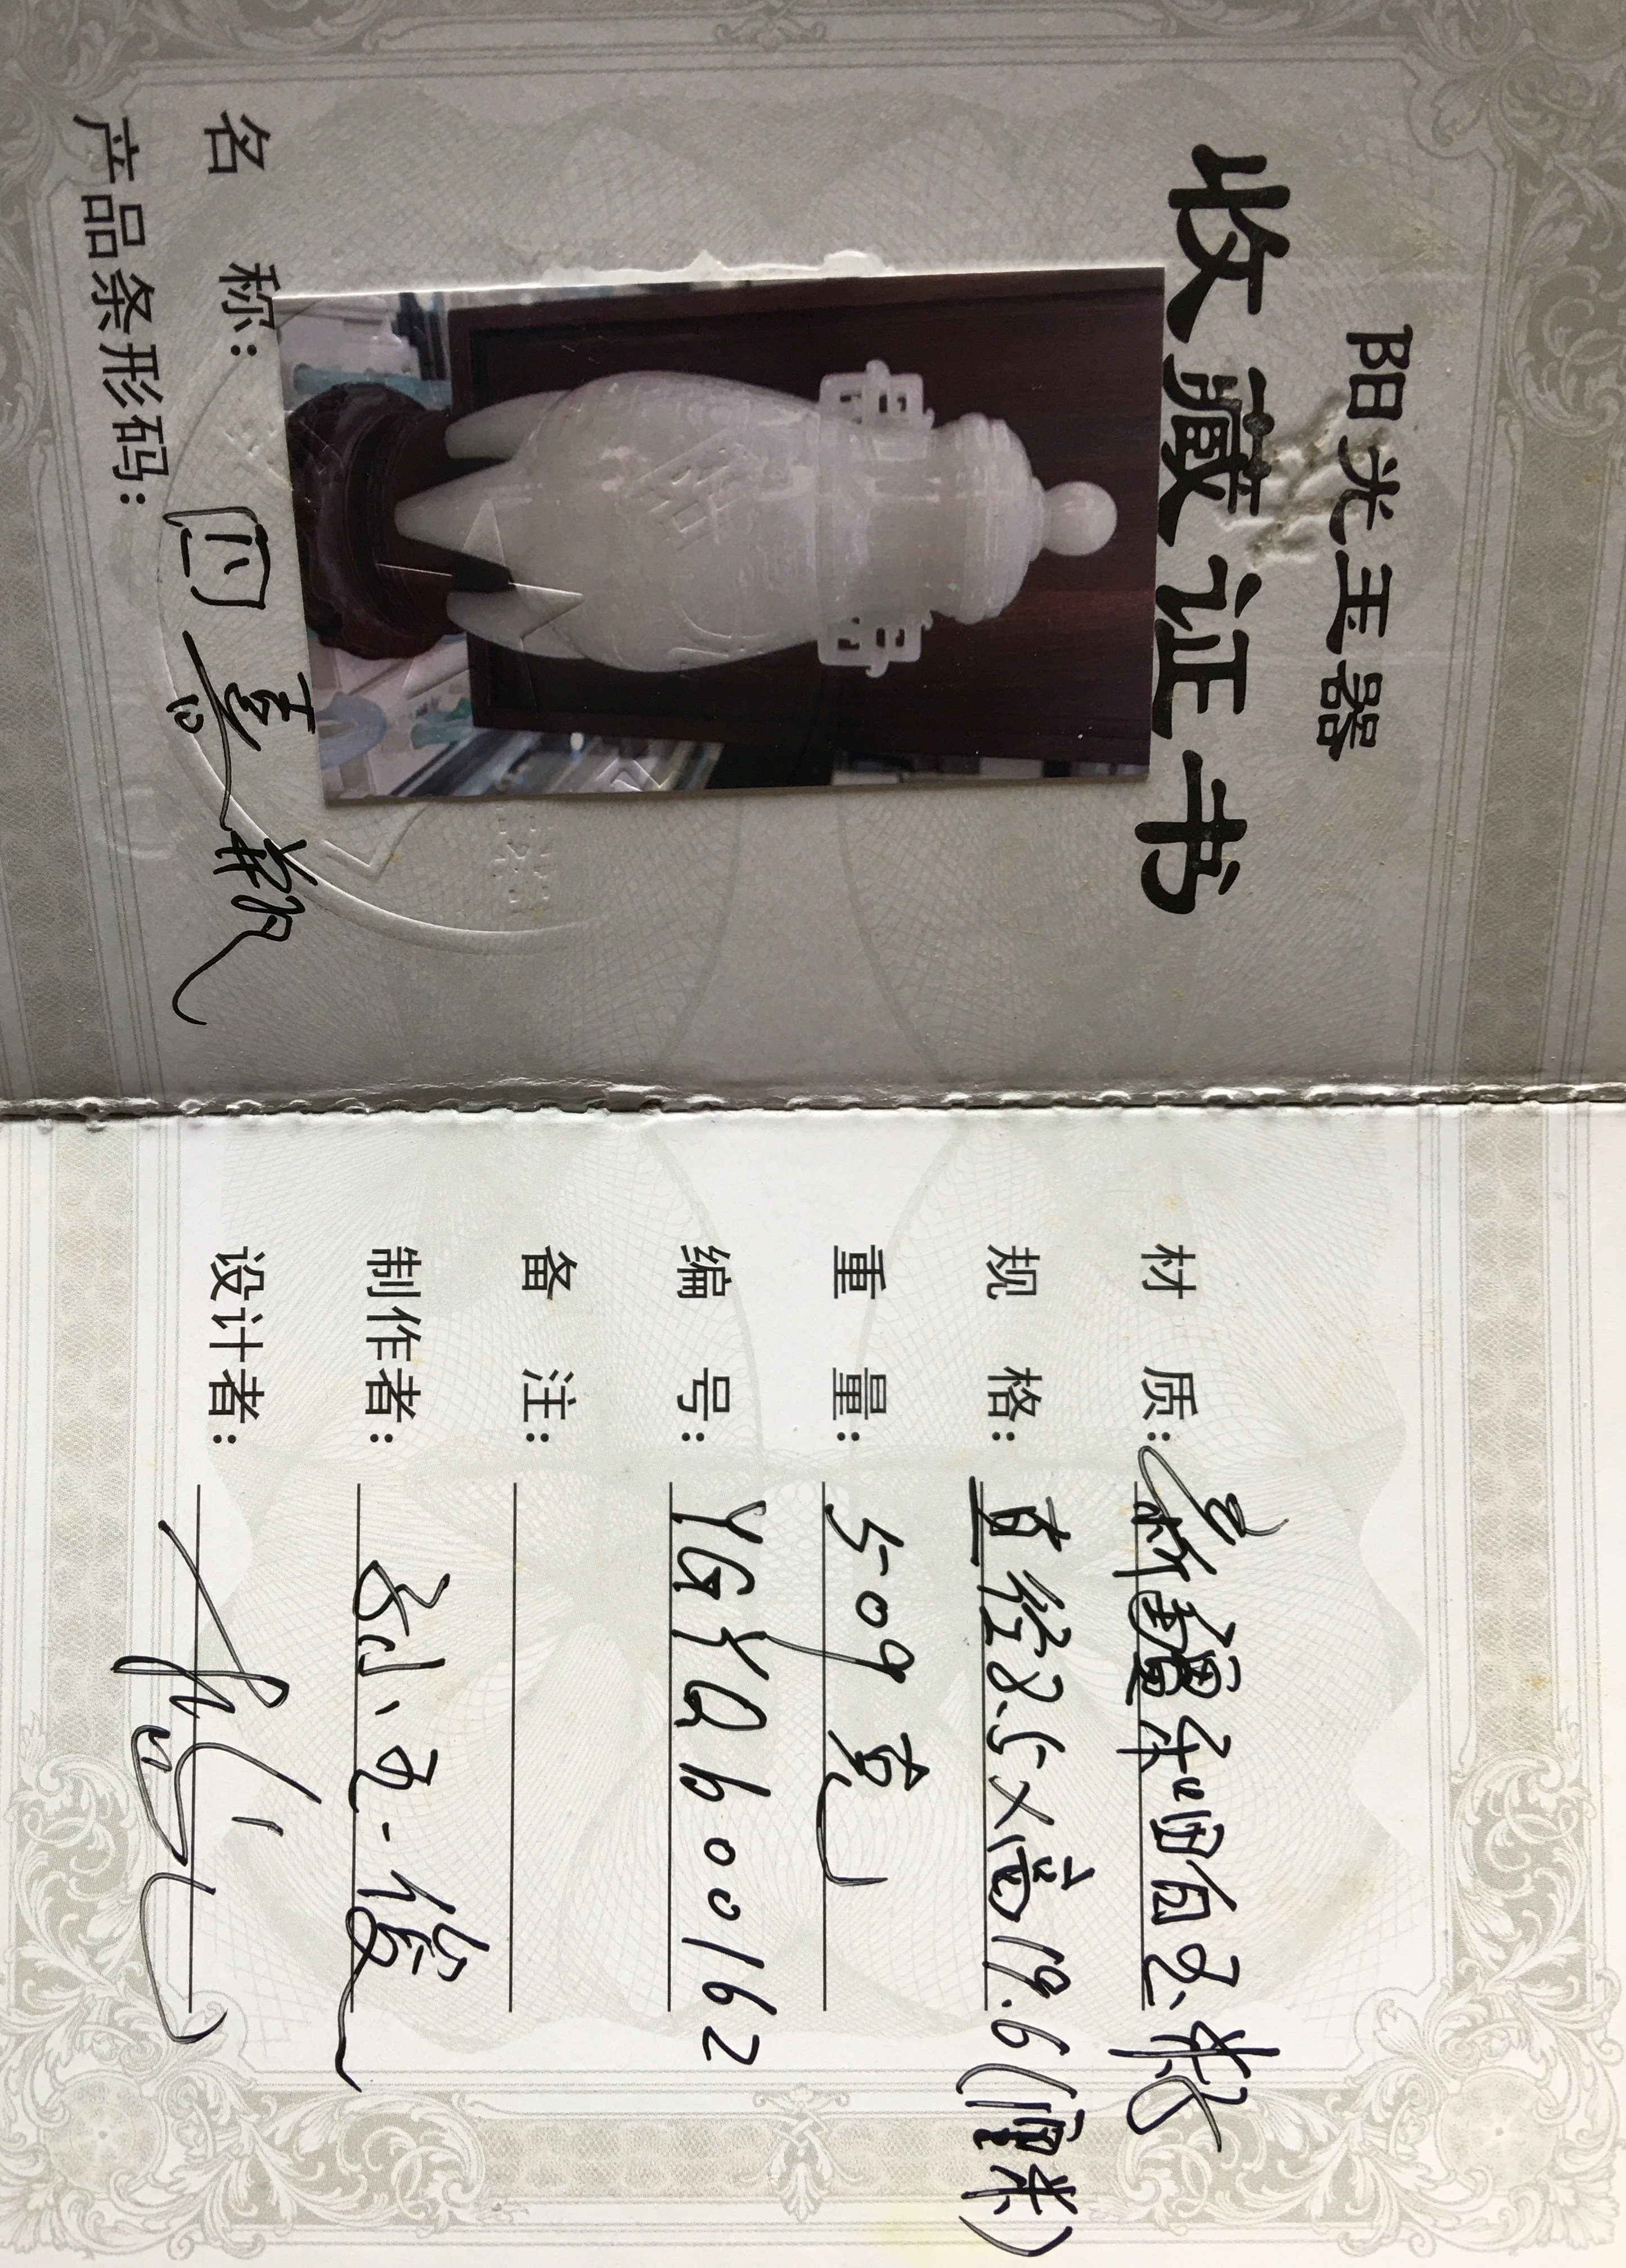 阳光玉器
收藏证书
名 称: 四喜瓶
产品条形码:
材 质: 新疆和田白玉籽
规 格: 直径8.5×高19.6(厘米)
重 量: 509克
编 号: YGYQb00162
备 注:
制作者: 刘
设计者: